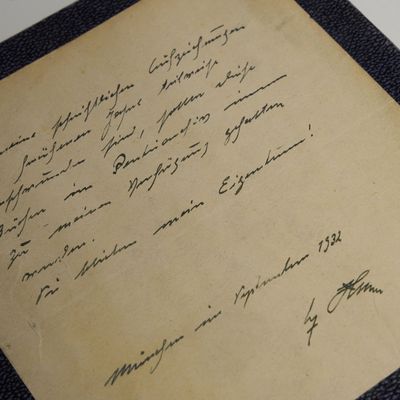 meine schriftlichen Aufzeichnungen
früherer Jahre teilweise
verschwunden sind, sollen diese
Bücher im Parteiarchiv immer
zu meiner Verfügung gehalten
werden.
Sie bleiben mein Eigentum!
München im September 1932